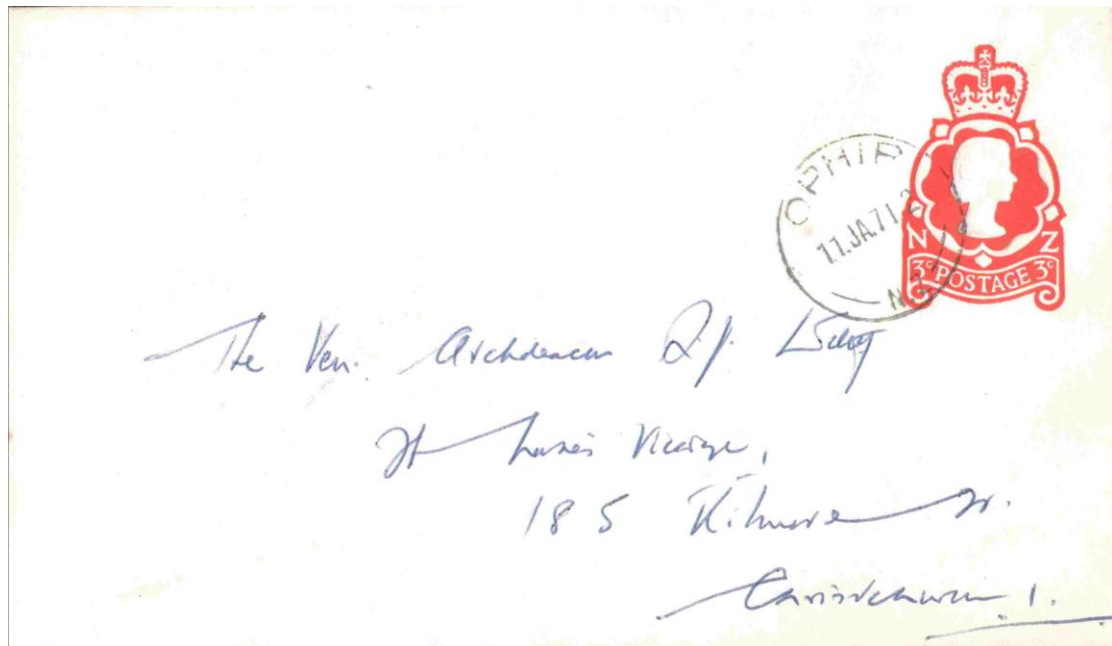 OPHIR
11.JA.71.2
N.Z
N Z
3c POSTAGE 3c
The Ven. Archdeacon
St Luke's Vicarage,
185 Kilmore St.
Christchurch 1.